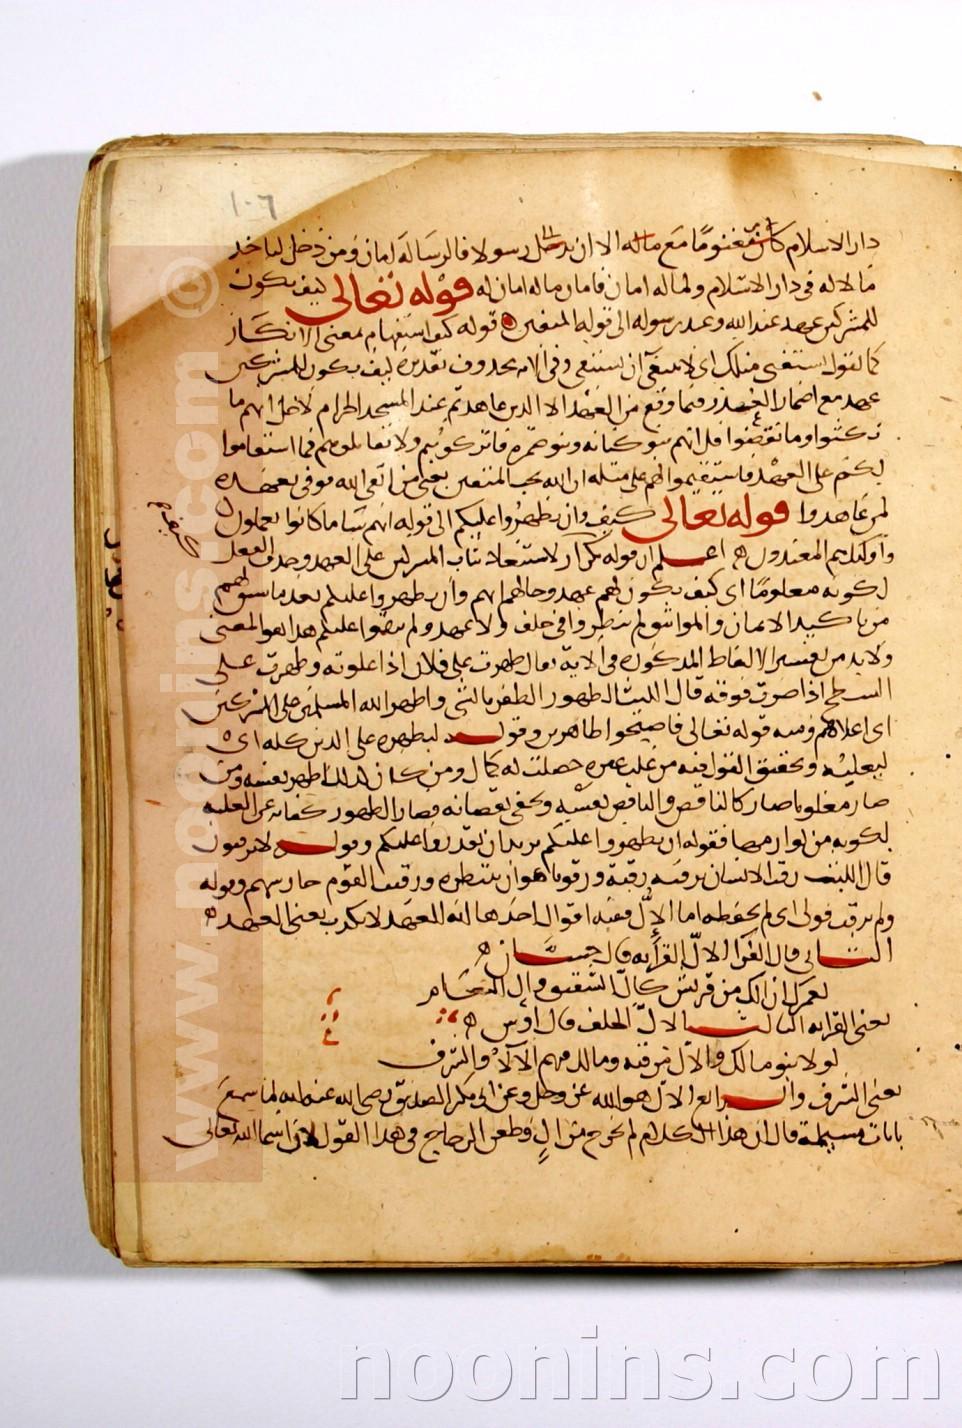 ١٠٦
دار الاسلام كان مغنوما مع ماله الا ان يدخل رسولا فالرسالة امان ومن دخل لياخذ
مالا له في دار الاسلام ولماله امان فامان ماله امان له قوله تعالى كيف يكون
للمشركين عهد عند الله وعند رسوله الى قوله المتقين قوله كيف استفهام بمعنى الانكار
كما تقول استفتى مثلك اى لا ينبغى ان يستفتى وفى الآية محذوف تقديره كيف يكون للمشركين
عهد مع اضمار الغدر فيما وقع من العهد الا الذين عاهدتم عند المسجد الحرام لاجل انهم ما
نكثوا وما نقضوا قيل انهم بنو كنانة وبنو ضمرة فاتركوهم ولا تقاتلوهم فما استقاموا
لكم على العهد فاستقيموا لهم على مثله ان الله يحب المتقين يعنى من اتقى الله موفى بعهده
لمن عاهدوا قوله تعالى كيف وان يظهروا عليكم الى قوله انهم ساء ما كانوا يعملون
واولئك هم المعتدون اعلم ان قوله تكرار لاستبعاد ثبات المشركين على العهد وحذف الفعل
لكونه معلوما اى كيف يكون لهم عهد وحالهم انهم وان يظهروا عليكم بعد ما سبق لهم
من تاكيد الايمان والمواثيق لم ينظروا فى حلف ولا عهد ولم يبقوا عليكم هذا هو المعنى
ولا بد من تفسير الالفاظ المذكورة فى الآية يقال ظهرت على فلان اذا علوته وظهرت على
السطح اذا صرت فوقه قال الليث الظهور الظفر بالشى واظهر الله المسلمين على المشركين
اى اعلاهم ومنه قوله تعالى فاصبحوا ظاهرين وقوله ليظهره على الدين كله اى
ليعليه وتحقيق القول فيه من غلب غيره حصلت له كمال ومن كان كذلك اظهر نفسه ومن
صار مغلوبا صار كالناقص والناقص نفسه ويخفى نقصانه فصار الظهور كناية عن الغلبة
لكونه من لوازمها فقوله ان يظهروا عليكم يريد ان يقدروا عليكم وقوله لا يرقبون
قال الليث رقب الانسان يرقبه رقبة ورقوبا هو ان ينتظره ورقيب القوم حارسهم وقوله
ولم ترقب قولى اى لم يحفظه اما الإلّ ففيه اقوال احدها انه العهد يعنى العهد
الثانى قال الفرا الالّ القرابة قال حسان
لعمرك ان الك من قريش كالّ السقب من ال النعام
يعنى القرابة الثالث الالّ الحلف قال اوس
لولا بنو مالك والالّ مرقبة ومالك فيهم الآلاء والشرف
يعنى الشرف والرابع الالّ هو الله عز وجل وعن ابى بكر الصديق رضى الله عنه انه لما سمع
هذيان مسيلمة قال ان هذا الكلام لم يخرج من الّ وطعن الزجاج فى هذا القول لان اسما الله تعالى
www.noorins.com ©
noonins.com